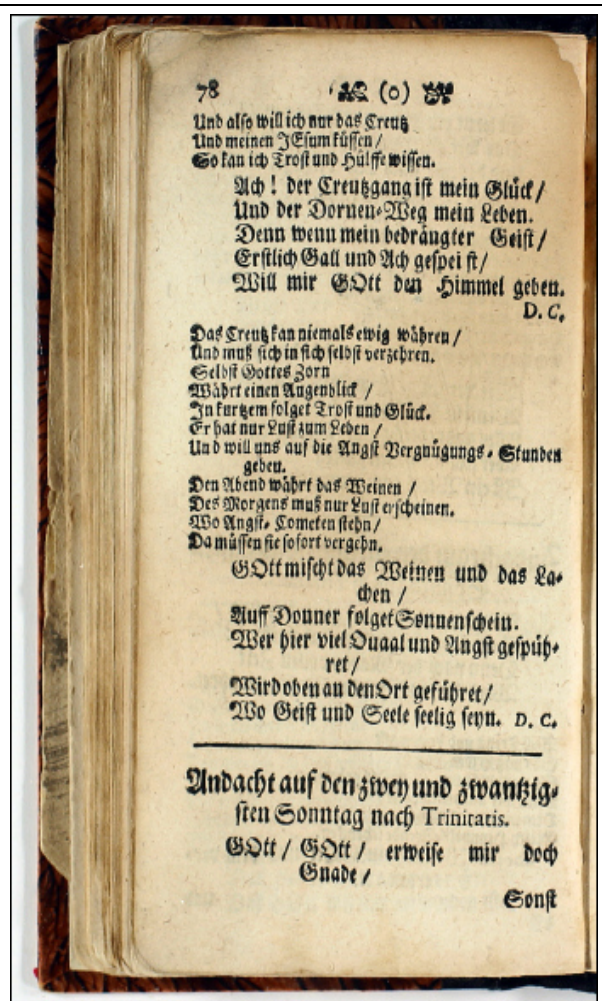 78 (o)
Und also will ich nur das Creutz
Und meinen JEsum küssen /
So kan ich Trost und Hülffe wissen.
Ach! der Creutzgang ist mein Glück /
Und der Dornen-Weg mein Leben.
Denn wenn mein bedrängter Geist /
Erstlich Gall und Ach gespeist /
Will mir GOtt den Himmel geben.
D. C.
Das Creutz kan niemals ewig währen /
Und muß sich in sich selbst verzehren.
Selbst Gottes Zorn
Währt einen Augenblick /
In kurtzem folget Trost und Glück.
Er hat nur Lust zum Leben /
Und will uns auf die Angst Vergnügungs-Stunden
geben.
Den Abend währt das Weinen /
Des Morgens muß nur Lust erscheinen.
Wo Angst-Cometen stehn /
Da müssen sie sofort vergehn.
GOtt mischt das Weinen und das La-
chen /
Auff Donner folget Sonnenschein.
Wer hier viel Quaal und Angst gespüh-
ret /
Wird oben an den Ort geführet /
Wo Geist und Seele seelig seyn. D. C.
Andacht auf den zwey und zwantzig-
sten Sonntag nach Trinitatis.
GOtt / GOtt / erweise mir doch
Gnade /
Sonst